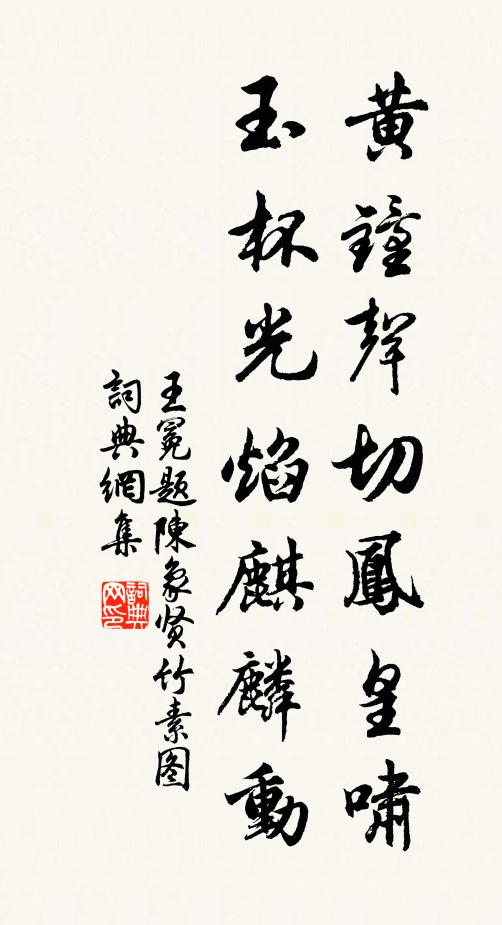 黄鐘聲切鳳皇嘯
玉杯光焰麒麟動
王冕題陳象贤竹素图
詞典網集
詞典网印